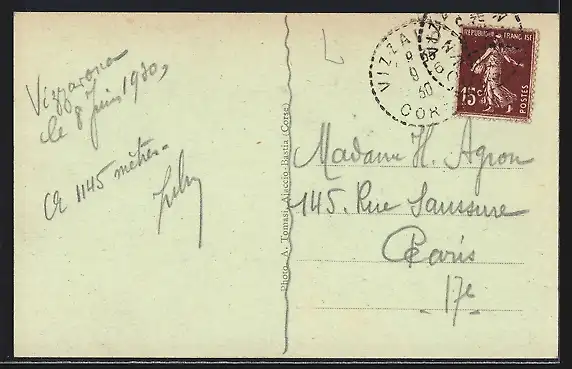 Vizzavona
le 8 Juin 1930,
à 1145 mètres.
Photo A. Tomasi, Ajaccio-Bastia (Corse)
VIZZAVONA
9 6
30
CORSE
REPUBLIQUE FRANÇAISE
15c
POSTES
Madame H. Agron
145. Rue Saussure
Paris
- 17e -